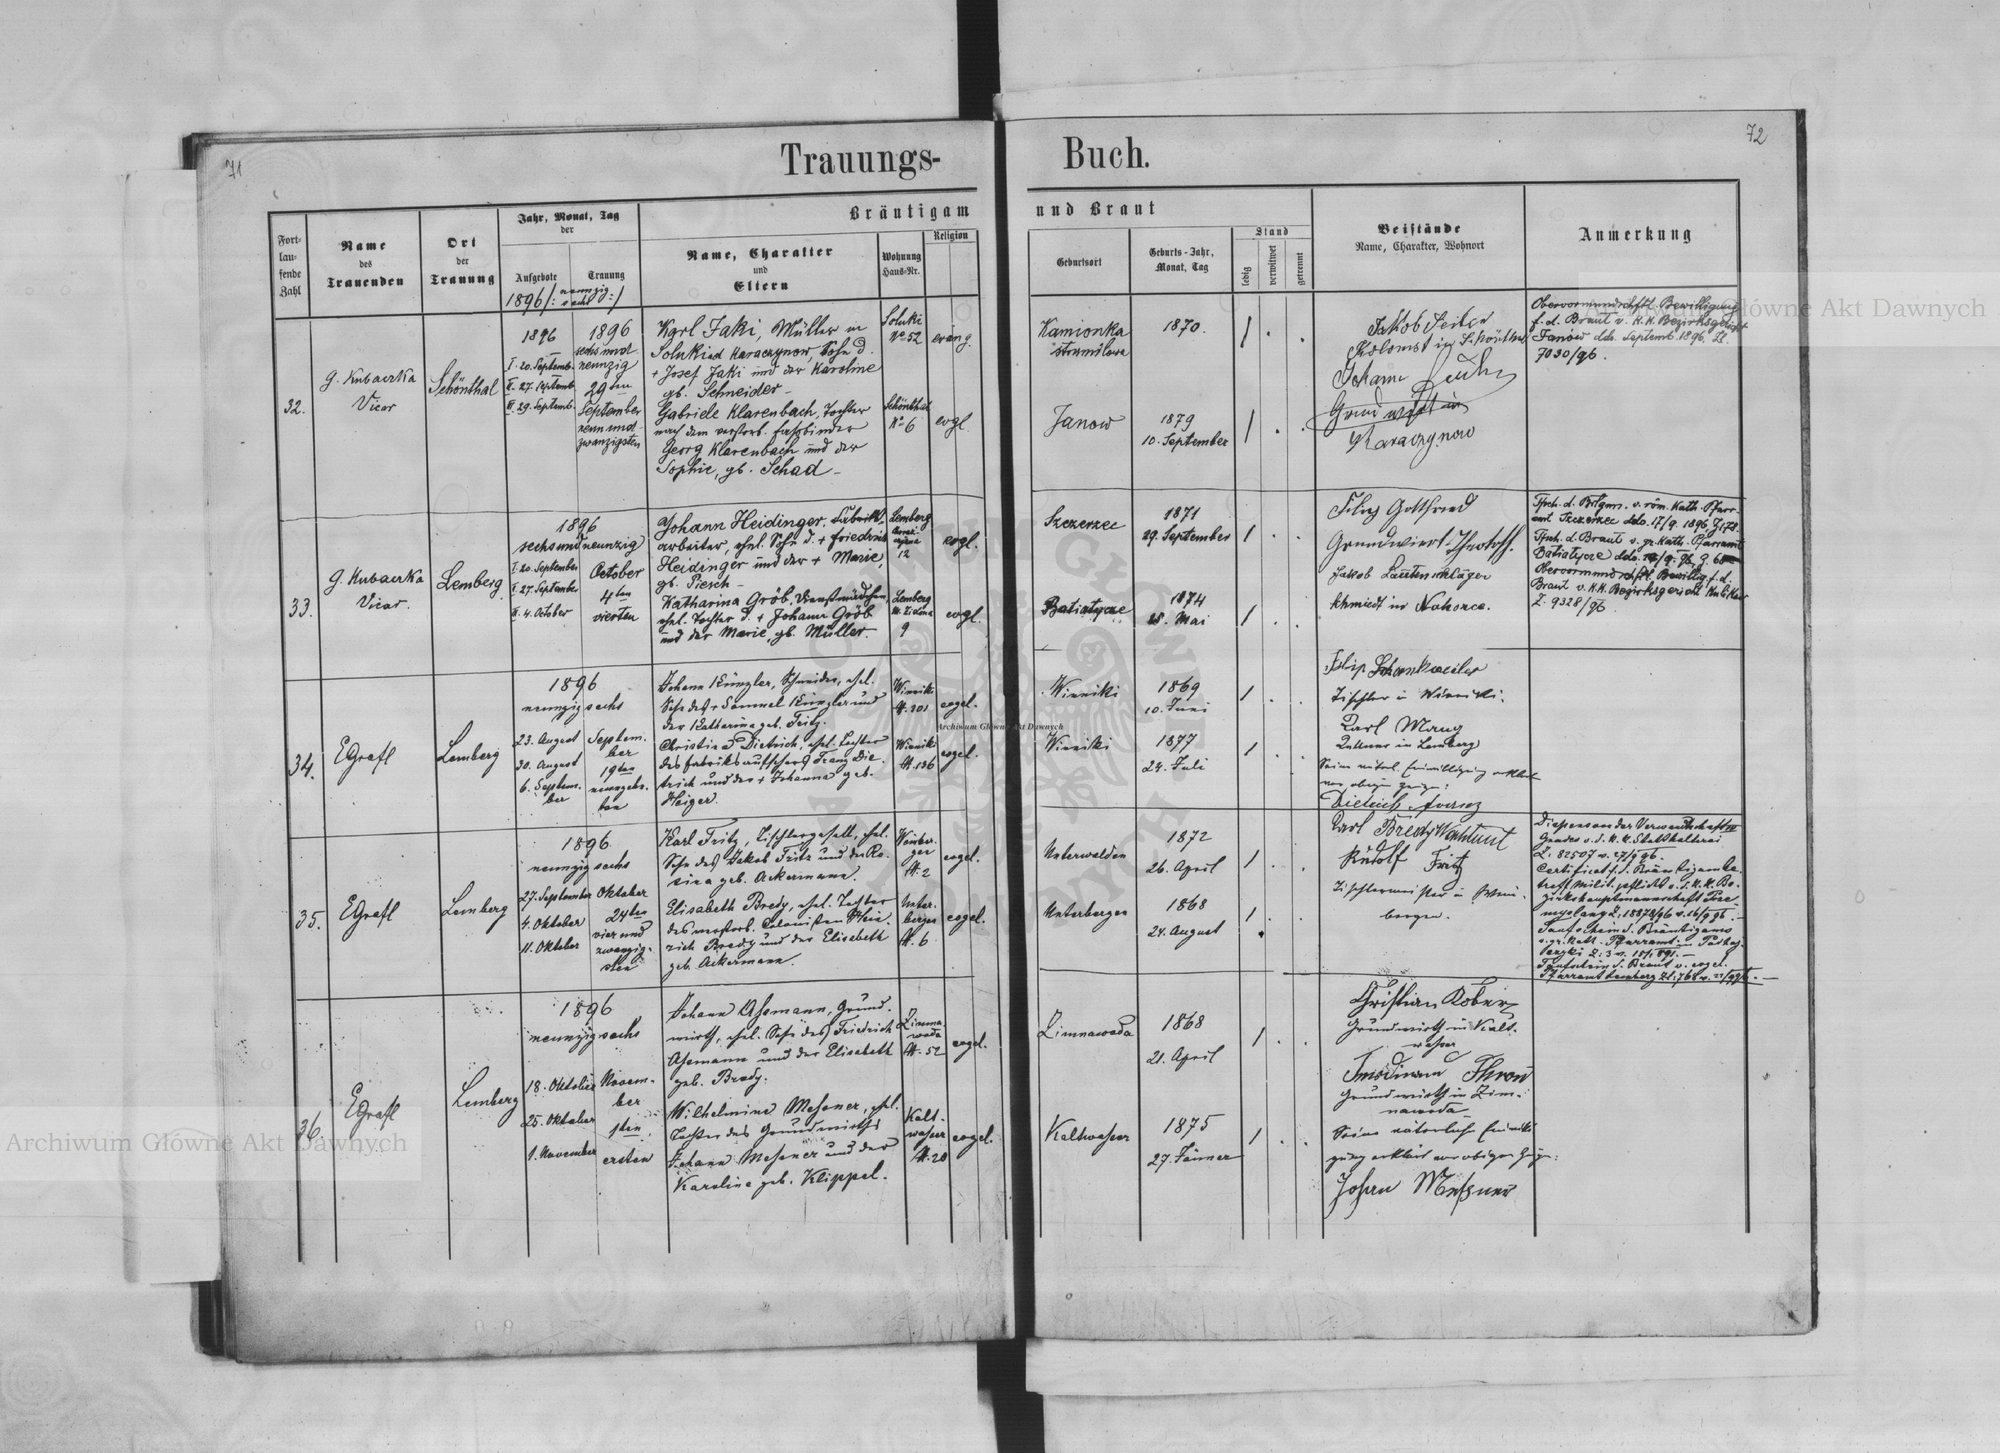 71
72
Trauungs-
Buch.
Fort-
lau-
fende
Zahl
Name
des
Trauenden
Ort
der
Trauung
Jahr, Monat, Tag
der
Aufgebote
Trauung
1896/: neunzig
sechs :/
Bräutigam
Name, Charakter
und
Eltern
Wohnung
Haus-Nr.
Religion
und Braut
Geburtsort
Geburts-Jahr,
Monat, Tag
Stand
ledig
verwitwet
getrennt
Beistände
Name, Charakter, Wohnort
Anmerkung
32.
G. Kubaczka
Vicar
Schönthal
1896
I. 20. Septemb.
II. 27. Septemb.
III. 29. Septemb.
1896
sechs und
neunzig
29ten
September
neun und
zwanzigsten
Karl Jaki, Müller in
Solukind Karaczynow, Sohn d.
+ Josef Jaki und der Karoline
gb. Schneider
Gabriele Klarenbach, Tochter
nach dem verstorb. Fassbinder
Georg Klarenbach und der
Sophie, gb. Schad
Soluki
No 52
evang.
Schönthal
No 6
evgl.
Kamionka
strumilowa
1870.
Janow
1879
10. September
Jakob Seiler
Kolonist in Schönthal
Johann
Grundwirth in
Karaczynow
Obervormundschaftl. Bewilligung
f. d. Braut v. K.K. Bezirksgericht
Janow ddo. Septemb. 1896. Zl.
7030/96.
33.
G. Kubaczka
Vicar.
Lemberg
1896
sechsundneunzig
I. 20. September
II. 27. September
III. 4. October
October
4ten
vierten
Johann Heidinger, Fabriks-
arbeiter, ehel. Sohn d. + Friedrich
Heidinger und der + Marie,
gb. Piesch
Katharina Gröb, Dienstmädchen,
ehel. Tochter d. + Johann Gröb
und der Marie, gb. Müller
Lemberg
12
evgl.
Lemberg
9
evgl.
Szczerzec
1871
29. September
Batiatycze
1874
28. Mai
Filip Gottfried
Grundwiert
Jakob Lautenschläger
Schmiedt in Nahorce.
Tfsch. d. Brtgms. v. röm. Kath. Pfarr-
amt Szczerzec ddo. 17/9. 1896, Z. 178.
Tfsch. d. Braut v. gr. Kath. Pfarramt
Batiatycze ddo.
Obervormundschftl. Bewillig. f. d.
Braut v. K.K. Bezirksgericht Kulikow
Z. 9328/96
34.
EGrafl
Lemberg
1896
neunzig sechs
23. August
30. August
6. Septem-
ber
Septem-
ber
19ten
neunzehn-
ten
Johann Künzler, Schneider, ehel.
Sohn des + Samuel Künzler und
der Katharina geb. Fritz.
Christina Dietrich, ehel. Tochter
des Fabriksaufsehers Franz Die-
trich und der + Johanna geb.
Heiger.
Winniki
N. 301
evgel.
Winniki
N. 136
evgel.
Winniki
1869
10. Juni
Winniki
1877
24. Juli
Filip Schankweiler
Tischler in Winniki.
Karl Maug
Kellner in Lemberg
Seine väterl. Einwilligung erklärt
vor obigen Zeugen:
Dietrich Franz
35.
EGrafl
Lemberg
1896
neunzig sechs
27. September
4. Oktober
11. Oktober
Oktober
24ten
vier und
zwanzig-
sten
Karl Fritz, Tischlergesell, ehel.
Sohn des Jakob Fritz und der Ro-
sina geb. Ackermann.
Elisabeth Bredy, ehel. Tochter
des verstorb. Colonisten Hein-
rich Bredy und der Elisabeth
geb. Ackermann.
Weinber-
gen
N. 2
evgel.
Unter-
bergen
N. 6
evgel.
Unterwalden
1872
26. April
Unterbergen
1868
24. August
Karl Bredy
Rudolf Fritz
Tischlermeister in Wein-
bergen.
Dispens von der Verwandtschaft
Grades v. d. K. K. Statthalterei
Z. 82507 v. 27/9 96.
Certificat f. d. Bräutigam be-
treff. Milit. pflicht v. d. K. K. Be-
zirkshauptmannschaft Prze-
myslany Z. 18878/96 v. 16/9 96.
Taufschein d. Bräutigams
v. gr. kath. Pfarramt in Podhaj-
Taufschein d. Braut v. evgel.
Pfarramt Lemberg
36.
EGrafl
Lemberg
1896
neunzig sechs
18. Oktober
25. Oktober
1. November
Novem-
ber
1sten
ersten
Johann Assmann, Grund-
wirth, ehel. Sohn des Friedrich
Assmann und der Elisabeth
geb. Bredy.
Wilhelmine Messner, ehel.
Tochter des Grundwirths
Johann Messner und der
Karoline geb. Klippel.
Zimna-
woda
N. 52
evgel.
Kalt-
wasser
N. 20
evgel.
Zimnawoda
1868
21. April
Kaltwasser
1875
27. Jänner
Christian Kober
Grundwirth in Kalt-
wasser
Grundwirth in Zim-
nawoda
Seine väterliche Einwilli-
gung erklärt vor obigen Zeugen:
Johan Messner
Archiwum Główne Akt Dawnych
Archiwum Główne Akt Dawnych
Archiwum Główne Akt Dawnych